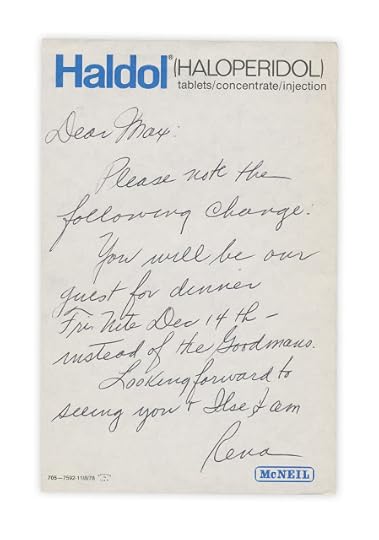 Haldol® (HALOPERIDOL)
tablets/concentrate/injection
Dear Max:
Please note the
following change:
You will be our
guest for dinner
Fri. Nite Dec 14th -
instead of the Goodmans.
Looking forward to
seeing you + Ilse I am
Rena
McNEIL